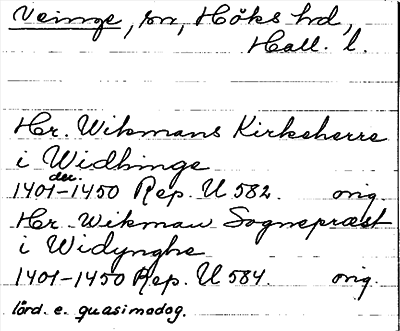 Veinge, sn, Höks hd,
Hall. l.
Hr. Wikmans Kirkeherre
i Widhinge
der.
1401-1450 Rep. U 582. orig.
Hr. Wikman Sognepræst
i Widynghe
1401-1450 Rep. U 584. orig.
lörd. e. quasimodog.